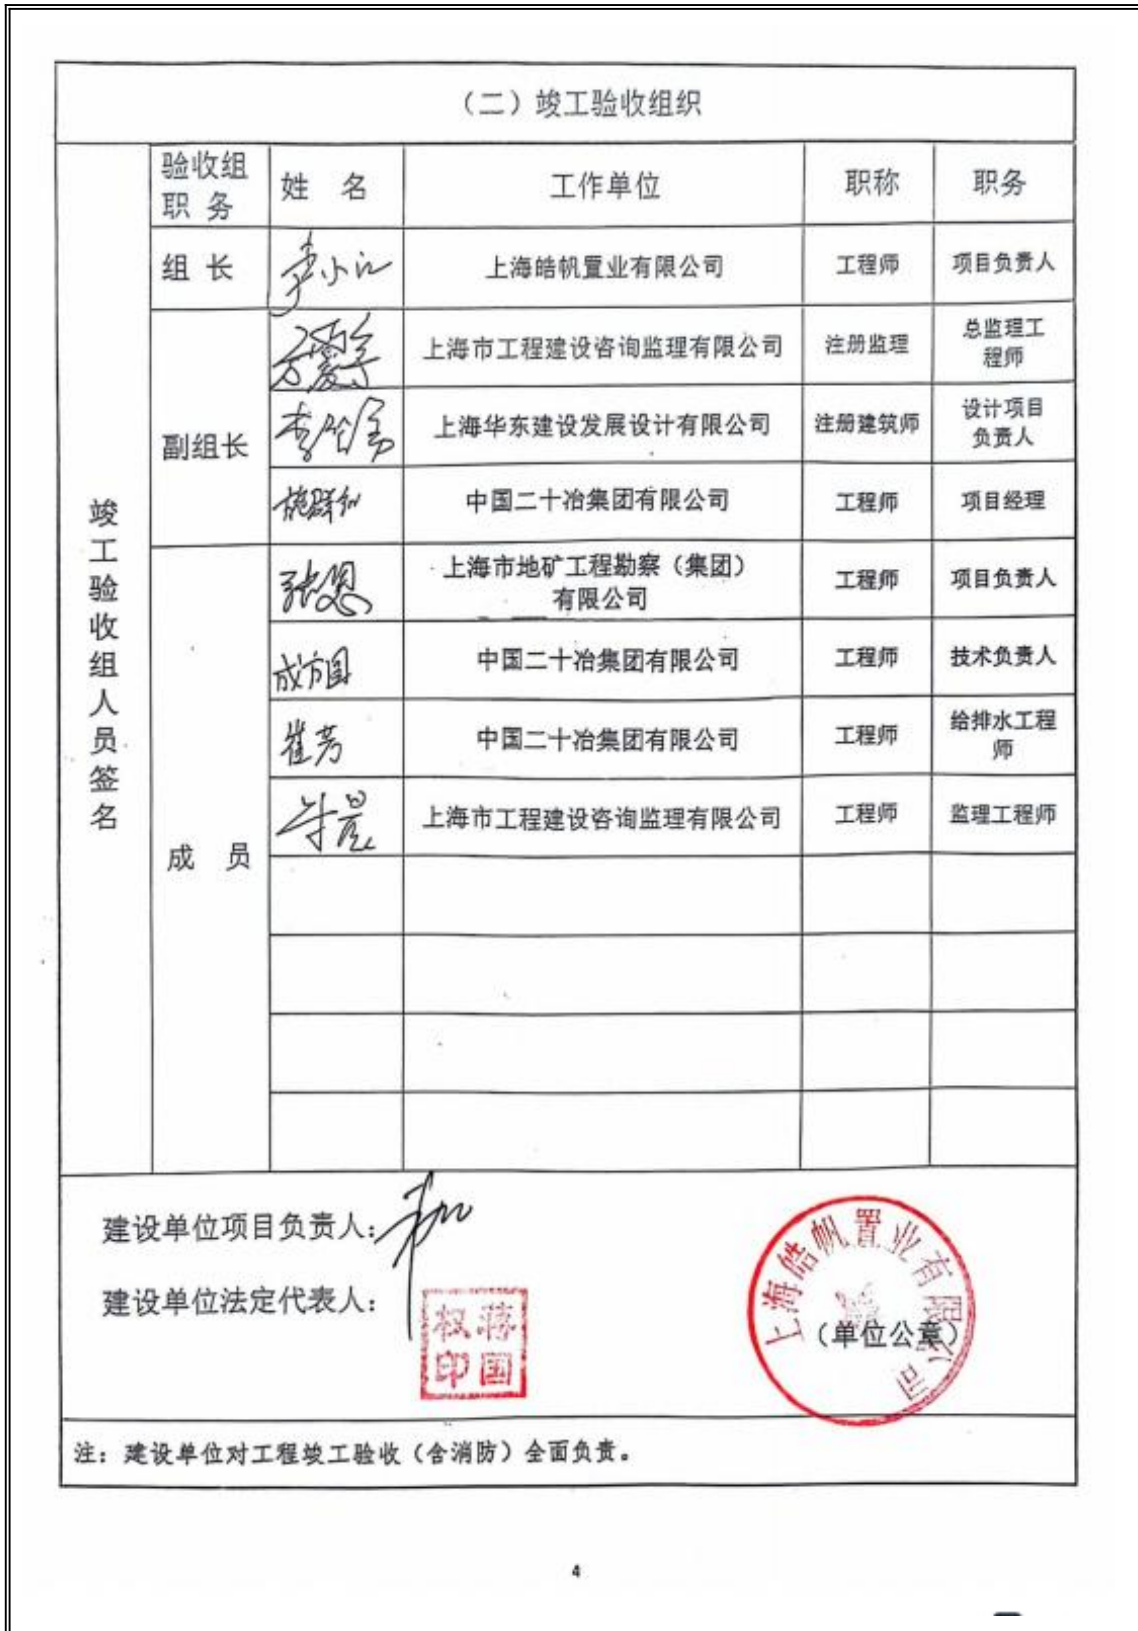 （二）竣工验收组织
竣工验收组人员签名
验收组
职 务
姓 名
工作单位
职称
职务
组 长
上海皓帆置业有限公司
工程师
项目负责人
副组长
上海市工程建设咨询监理有限公司
注册监理
总监理工
程师
上海华东建设发展设计有限公司
注册建筑师
设计项目
负责人
施群
中国二十冶集团有限公司
工程师
项目经理
成 员
上海市地矿工程勘察（集团）
有限公司
工程师
项目负责人
成方圆
中国二十冶集团有限公司
工程师
技术负责人
崔芳
中国二十冶集团有限公司
工程师
给排水工程
师
上海市工程建设咨询监理有限公司
工程师
监理工程师
建设单位项目负责人：
建设单位法定代表人：
蒋国权印
上海皓帆置业有限公司
（单位公章）
注：建设单位对工程竣工验收（含消防）全面负责。
4